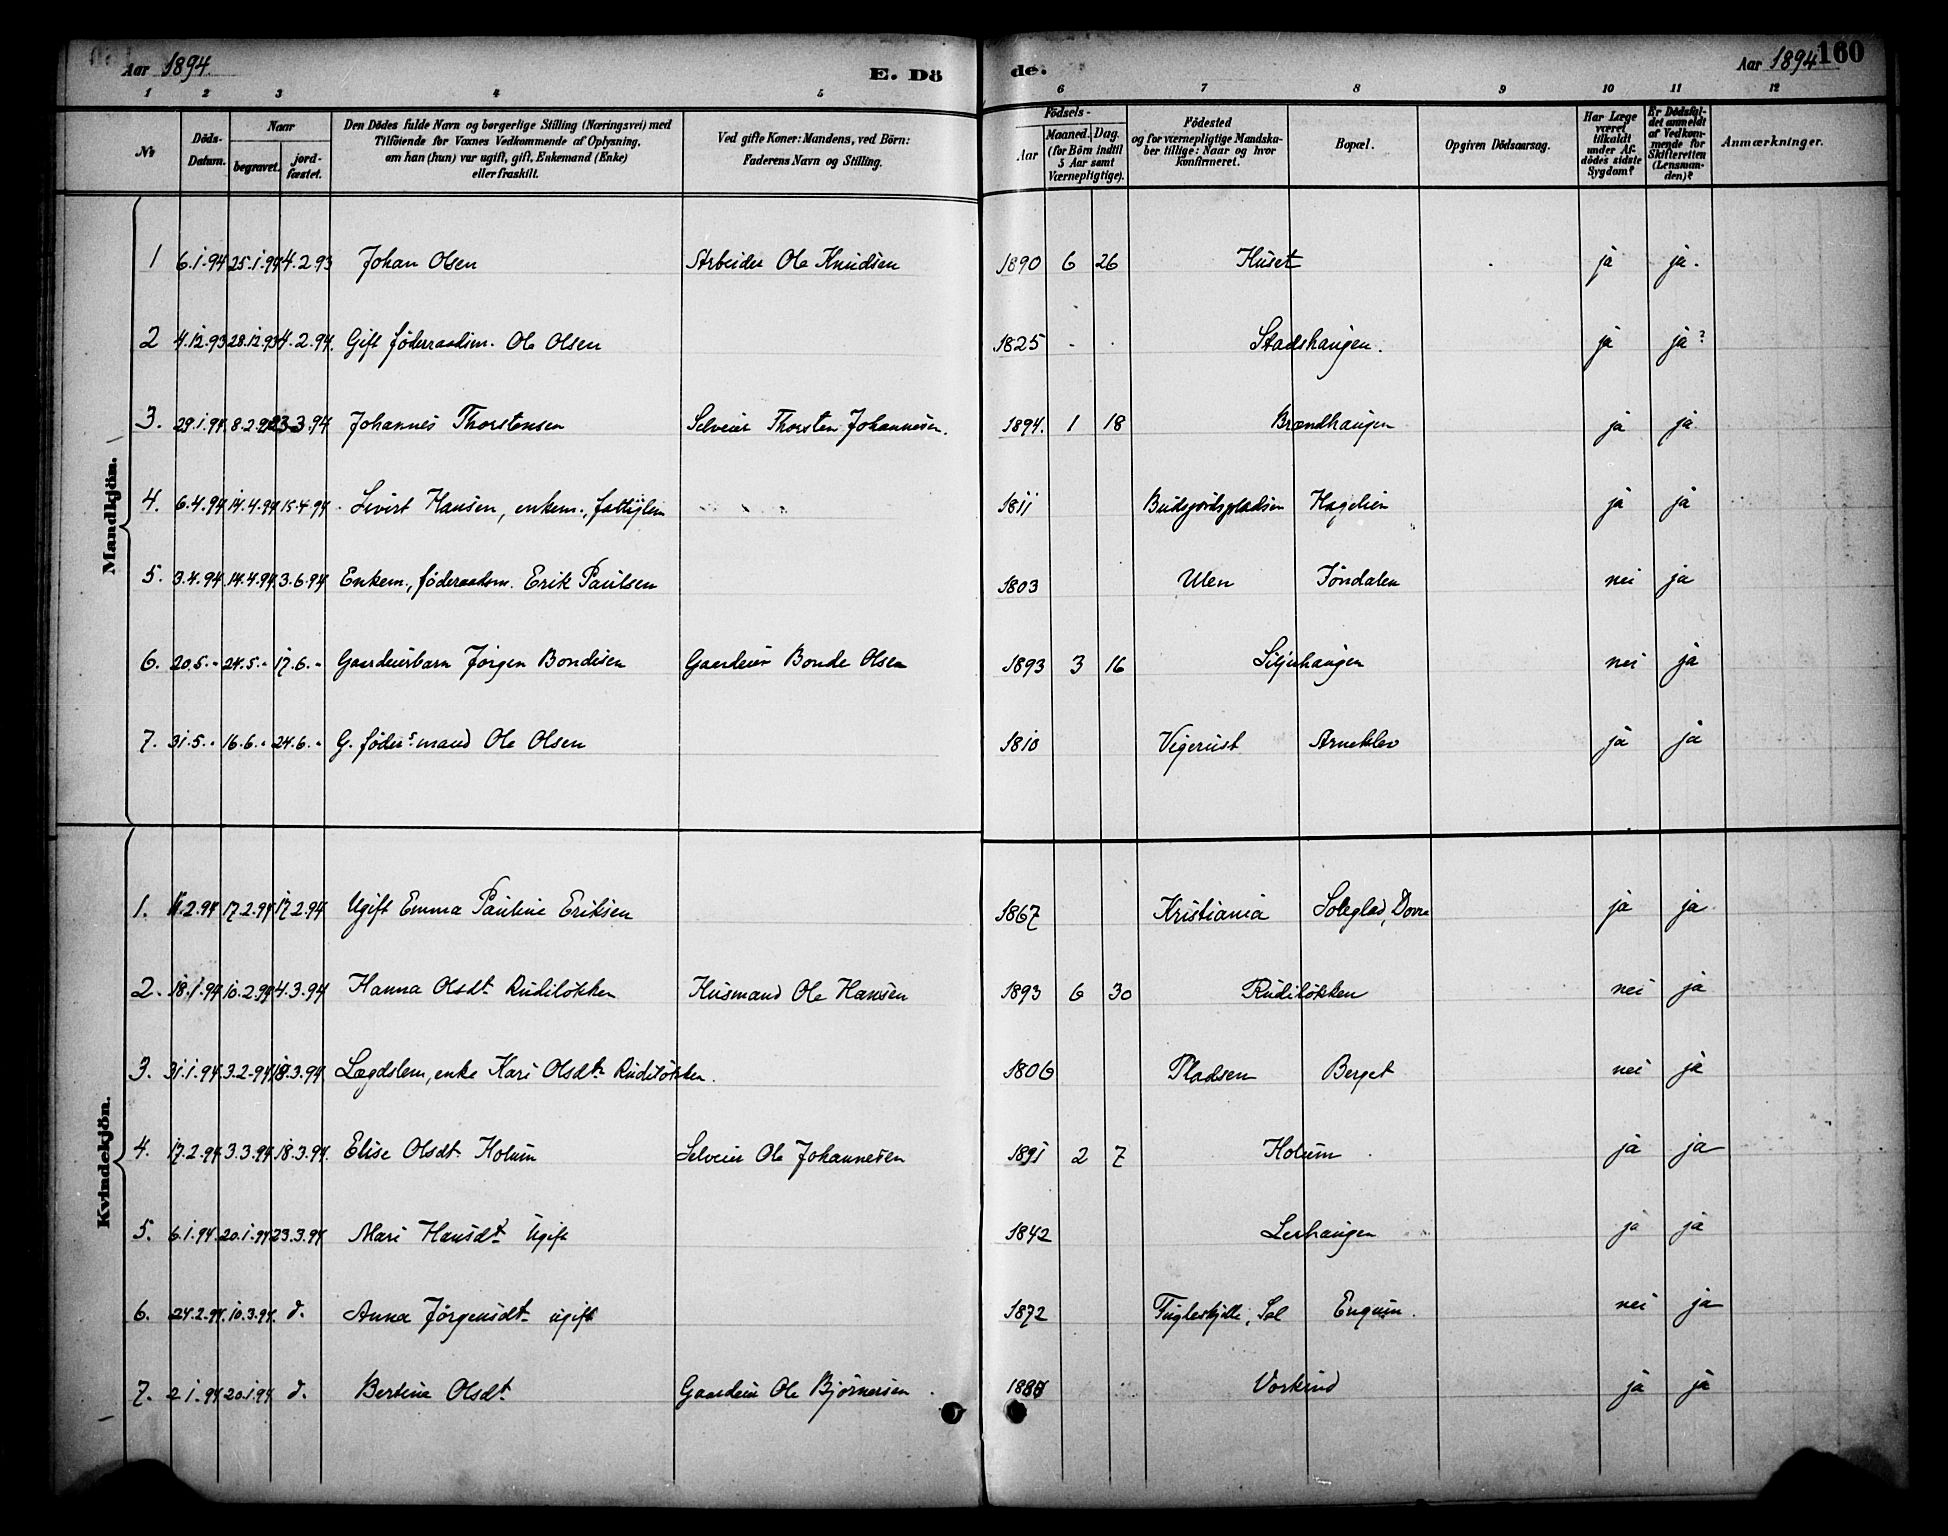 Aar 1894. E. Dö de. Aar 1894 160
1 2 3 4 5 6 7 8 9 10 11 12
No Döds-Datum. Naar begravet. jord-fæstet. Den Dödes fulde Navn og borgerlige Stilling (Næringsvei) med Tilföiende for Voxnes Vedkommende af Oplysning, om han (hun) var ugift, gift, Enkemand (Enke) eller fraskilt. Ved gifte Koner: Mandens, ved Börn: Faderens Navn og Stilling. Födsels- Aar Maaned. Dag. (for Börn indtil 5 Aar samt Værnepligtige). Födested og for værnepligtige Mandskaber tillige: Naar og hvor konfirmeret. Bopæl. Opgiven Dödsaarsag. Har Læge været tilkaldt under Afdödes sidste Sygdom? Er Dödsfaldet anmeldt af Vedkommende for Skifteretten (Lensmanden)? Anmærkninger.
Mandkjön.
1 6.1.94 25.1.94 4.2.93 Johan Olsen Arbeider Ole Knudsen 1890 6 26 Huset ja ja.
2 4.12.93 28.12.93 4.2.94. Gift föderaadsm. Ole Olsen 1825 Stadshaugen. ja ja?
3. 29.1.94 8.2.94 23.3.94 Johannes Thorstensen Selveier Thorsten Johannesen. 1894. 1 18 Brændhaugen ja ja.
4. 6.4.94 14.4.94 15.4.94 Sivert Hansen, enkem., fattiglem 1811 Budsjordspladsen Hagelien ja ja
5. 3.4.94 14.4.94 3.6.94 Enkem., föderaadsm. Erik Paulsen 1803 Ulen Jöndalen nei ja
6. 20.5.- 24.5.- 17.6.- Gaardeierbarn Jörgen Bondesen Gaardeier Bonde Olsen 1893 3 16 Siljehaugen nei ja
7. 31.5.- 16.6.- 24.6.- G. föder.s mand Ole Olsen 1810 Vigerust Arneklev ja ja
Kvindekjön.
1. 11.2.94 17.2.94 17.2.94 Ugift Emma Pauline Eriksen 1867 Kristiania Soleglad, Dovre ja ja
2. 18.1.94 10.2.94 4.3.94 Hanna Olsdt. Rudilökken Husmand Ole Hansen 1893 6 30 Rudilökken nei ja
3. 31.1.94 3.2.94 18.3.94 Lægdslem, enke Kari Olsdt. Rudilökken. 1806 Pladsen Berget nei ja
4. 17.2.94 3.3.94 18.3.94. Elise Olsdt. Holum Selveier Ole Johannesen 1891 2 7 Holum ja ja
5. 6.1.94. 20.1.94 23.3.94 Mari Hansdt. Ugift 1842 Lerhaugen ja ja
6. 24.2.94. 10.3.94. d. Anna Jörgensdt. ugift 1872 Fugleskjelle, Sel Enquin. nei ja
7. 2.1.94 20.1.94 d. Bertine Olsdt. Gaardeier Ole Björnersen Vorkind ja ja